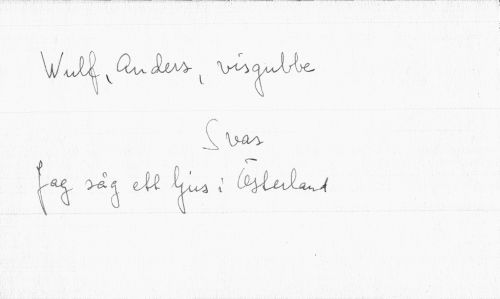 Wulf, Anders, visgubbe
Svas
Jag såg ett ljus i Österland